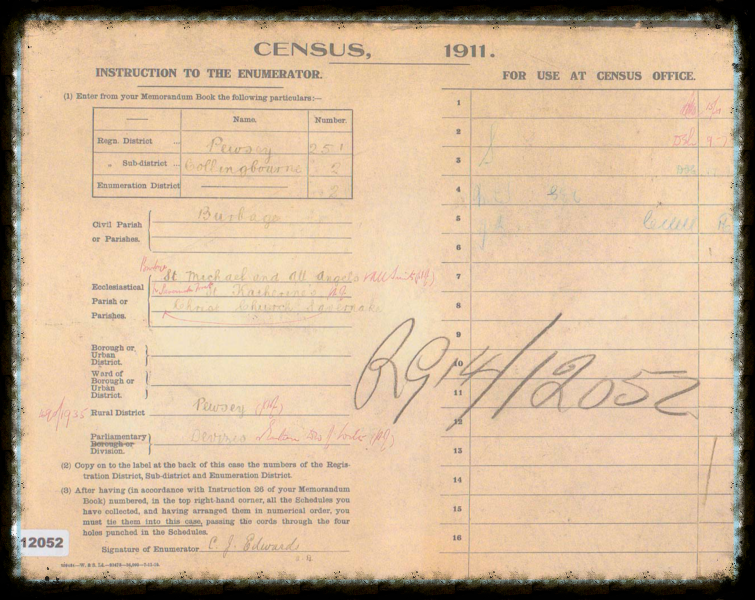 CENSUS, 1911.
INSTRUCTION TO THE ENUMERATOR.
(1) Enter from your Memorandum Book the following particulars:—
Name. Number.
Regn. District Pewsey 251
" Sub-district Collingbourne 2
Enumeration District 2
Civil Parish
or Parishes.
Burbage
Ecclesiastical
Parish or
Parishes.
St Michael and All Angels
St Katherine's
Christ Church Savernake
Borough or
Urban
District.
Ward of
Borough or
Urban
District.
Rural District Pewsey
Parliamentary
Borough or
Division.
Devizes
(2) Copy on to the label at the back of this case the numbers of the Regis-
tration District, Sub-district and Enumeration District.
(3) After having (in accordance with Instruction 26 of your Memorandum
Book) numbered, in the top right-hand corner, all the Schedules you
have collected, and having arranged them in numerical order, you
must tie them into this case, passing the cords through the four
holes punched in the Schedules.
Signature of Enumerator C. J. Edwards
12052
FOR USE AT CENSUS OFFICE.
1
2
3
4
5
6
7
8
9
10
11
12
13
14
15
16
RG 14/12052